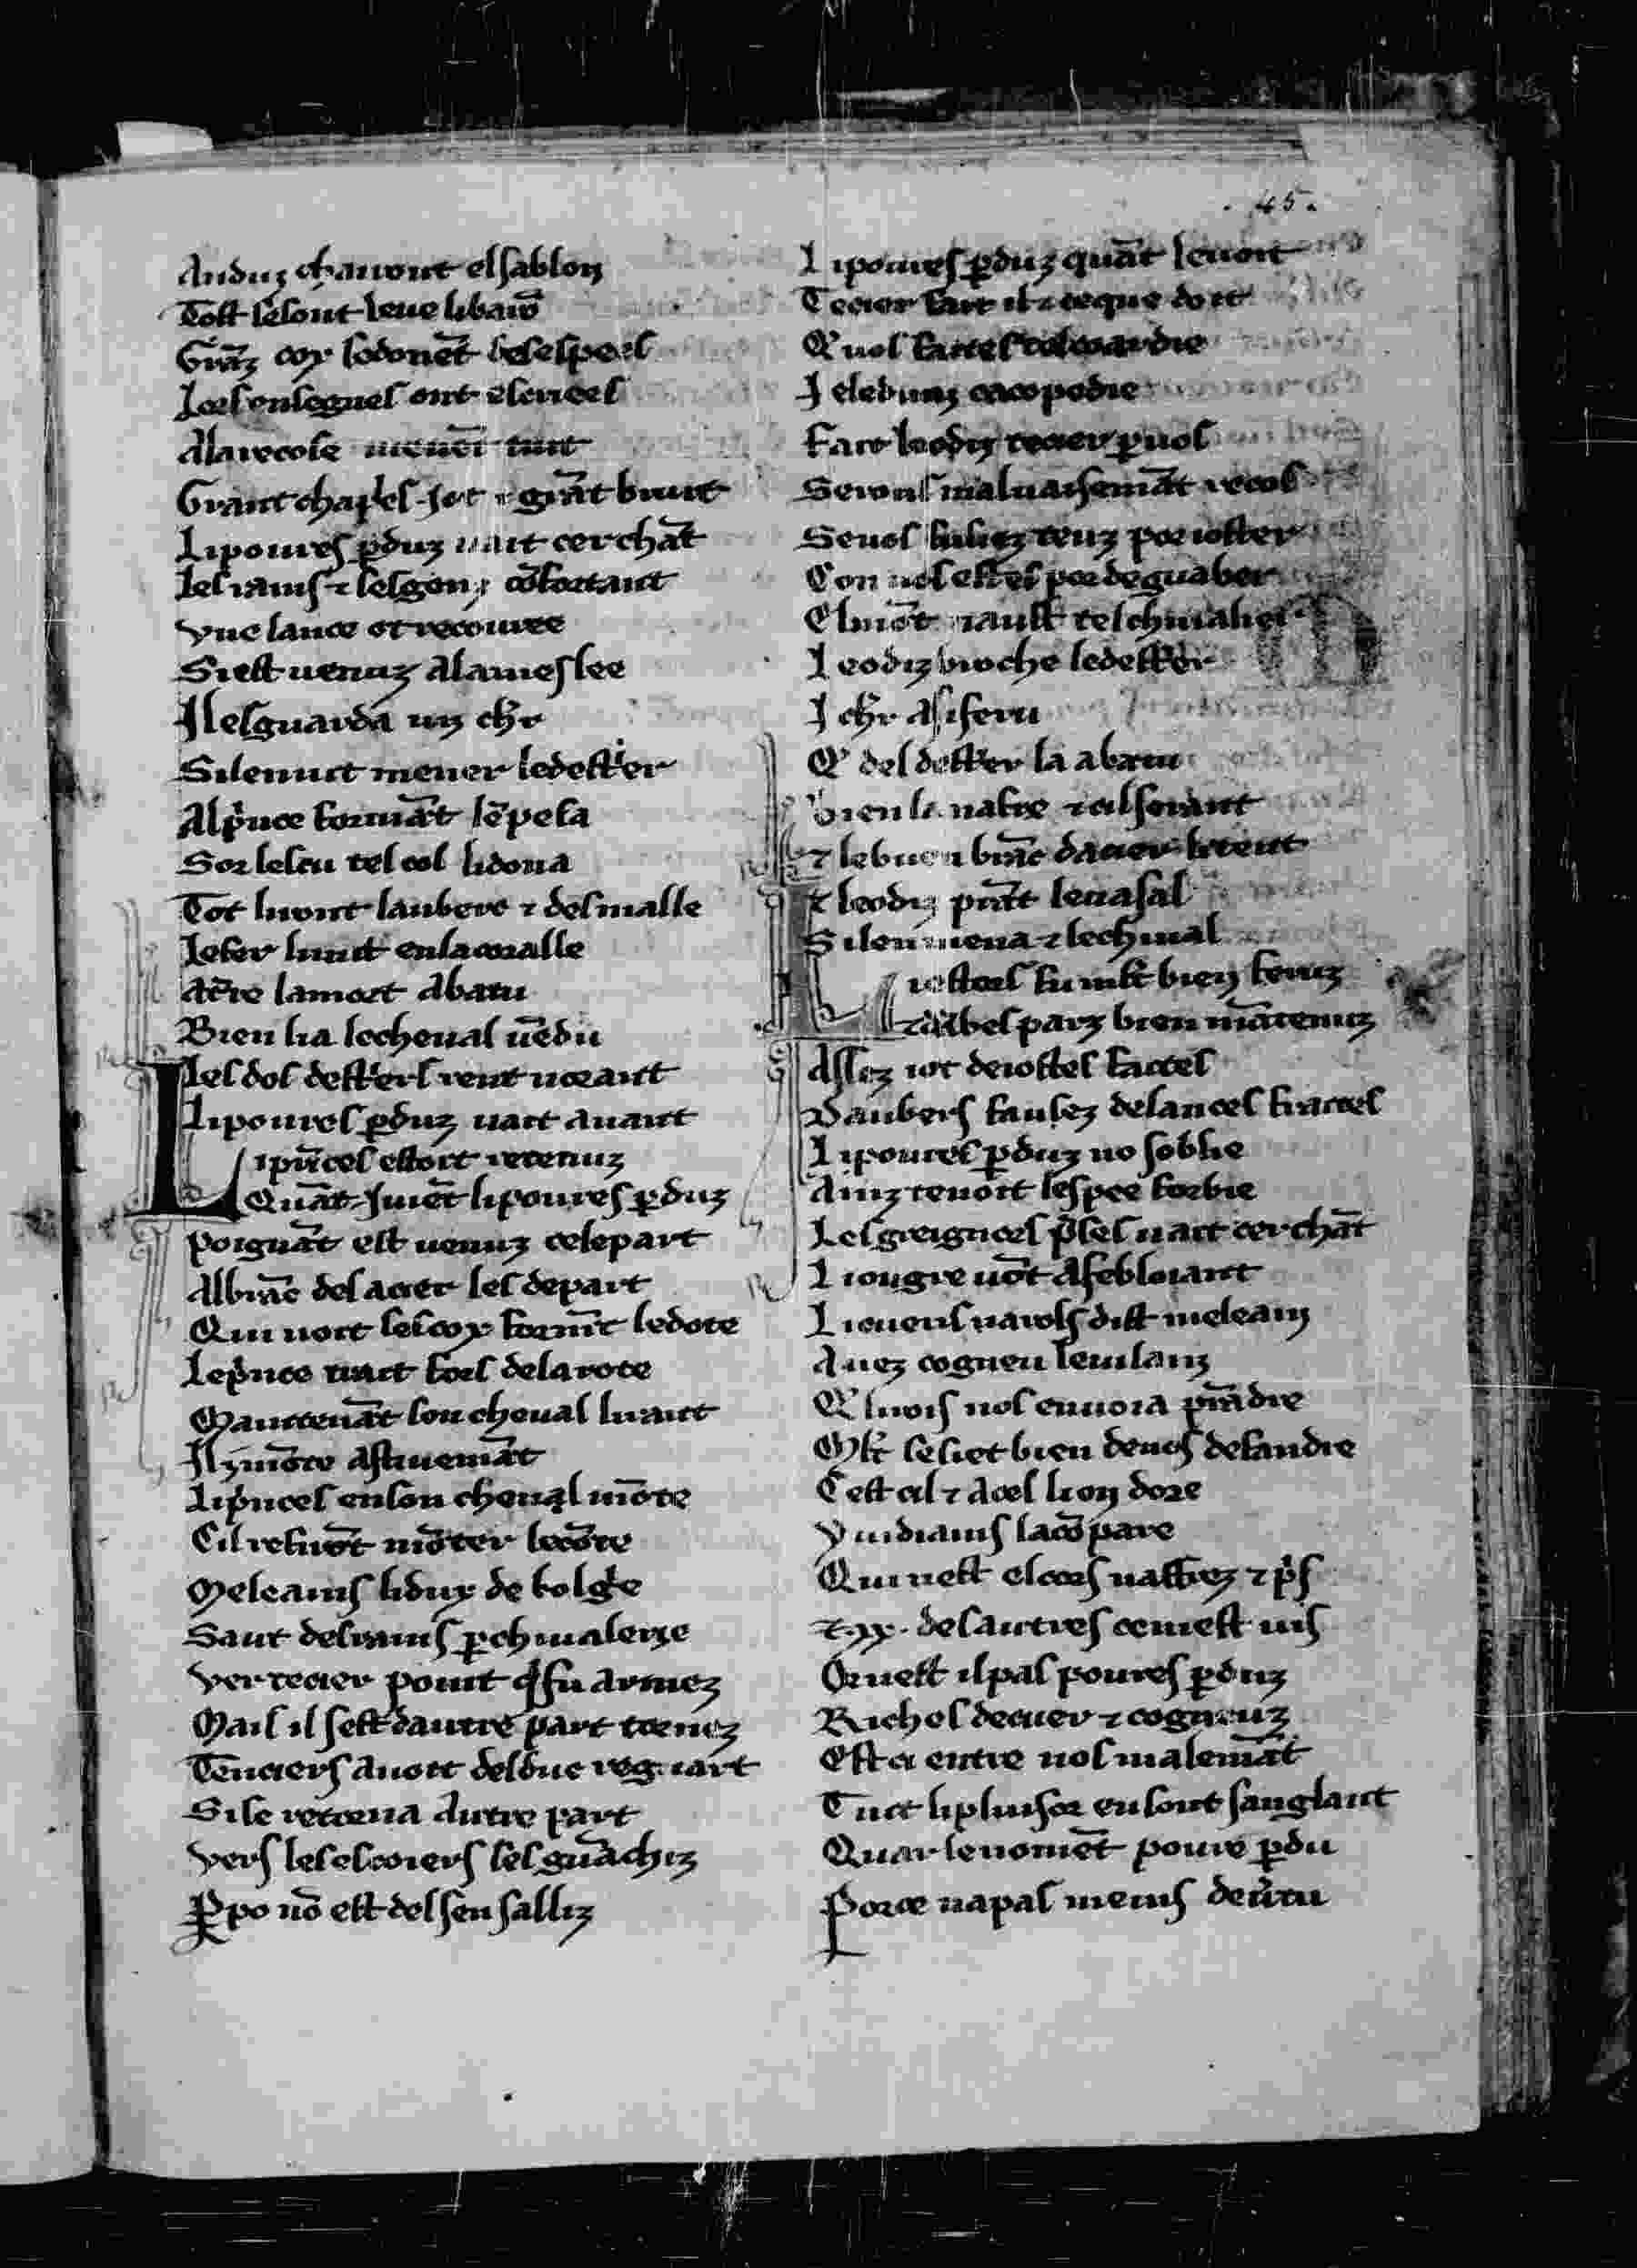 .45.
Anduz chairont el sablon
Tost se sont leue li baro̅
Gra̅z cox se done̅t des espees
Les ensegnes ont escriees
A la recose uienent tuit
Grant chaples i ot ⁊ gra̅t bruit
Li poures p̲duz uait cercha̅t
Les rains ⁊ les gonz co̅fortant
Vne lance ot recouree
Si est uenuz a la meslee
Il esguarda un ch̅r
Si len uit mener le dest̓er
Al p̓nce forma̅t
Sor lescu tel col li dona
Tot li ront lauberc ⁊ desmalle
Le fer li mit en la coralle
A t̅re la mort abatu
Bien li a le cheual ue̅du
Les dos dest̓ers rent
Li poures p̲duz uait auant
Li p̓nces estoit retenuz
Qua̅t i uie̅t li poures p̲duz
Poigna̅t est uenuz cele part
Al bra̅c del acier les depart
Qui uoit ses cox form̅t le dote
Le p̓nce trait fors de la rote
Maintena̅t son cheual li rant
Il i mo̅te
Li p̓nces en son cheual mo̅te
Cil refiro̅t mo̅ter le co̅te
Meleains li dux de
Saut del rains p̲ ch̅iualerie
Ver tecier point q̓ fu armez
Mais il sest dautre part tornez
Teciers auoit del duc reguart
Si se retorna autre part
Vers les escoiers ses gua̅chiz
P̲ po no̅ est del sen salliz
Li poures p̲duz qua̅t le uoit
Tecier fait il ⁊ ce que doit
Q̓ uos faites coloardie
I ele duns
Faire le odiz tecier p̲ uos
Serons maluaisema̅t recos
Se uos fussiez tenz por ioster
Con uos estes por de guaber
El mo̅t naust tel ch̅iualier
Leodiz broche le dest̓er
I ch̅r a si feru
Q̓ del dest̓er la abatu
⁊ le buen bra̅c dacier
⁊ leodiz pra̅t le uasal
Si len mena ⁊ le ch̅iual
Li estors fu mlt̓ bien feruz
⁊ danbes parz bien ma̅tenuz
Assez i ot de iostes faites
Daubers fausez de lances fraites
Li poures p̲duz no soblie
Ainz tenoit lespee forbie
Les greignors p̓ses uait cercha̅t
Li ongre uo̅t afebloiant
Li ouens narols dist meleanz
Auez cogneu
Q̓ li rois nos enuoia pra̅dre
Mlt̓ se set bien de uos defandre
Cest cil ⁊ a cel lion dore
Vmdiains
Qui uest el cors naffrez ⁊ p̓s
⁊ .xx. des autres
Or nest il pas poures p̲duz
Riches de cuer ⁊ cogneuz
Est ci entre nos malema̅t
Tuit li plusor en sont sanglant
Quar le nome̅t poure p̲du
Por ce na pas meins de u̓tu